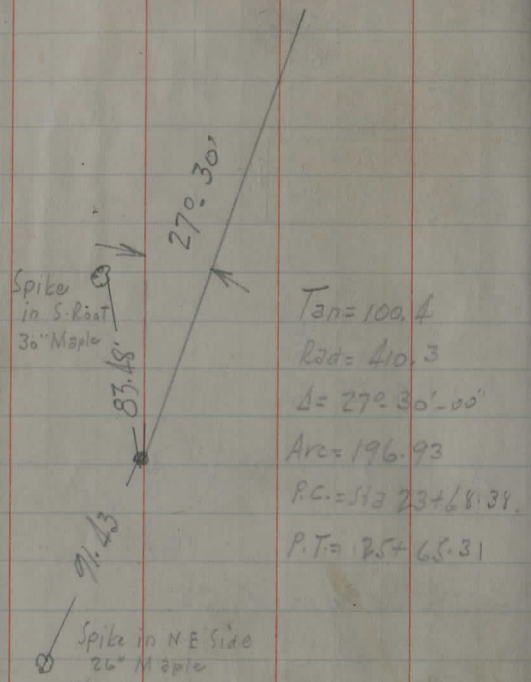 27°-30'
Spike
in S-Root
30" Maple
83.48'
91.43
Spike in NE Side
26" Maple
Tan = 100.4
Rad = 410.3
Δ = 27°-30'-00"
Arc = 196.93
P.C. = Sta 23+68.38
P.T. = 25+65.31